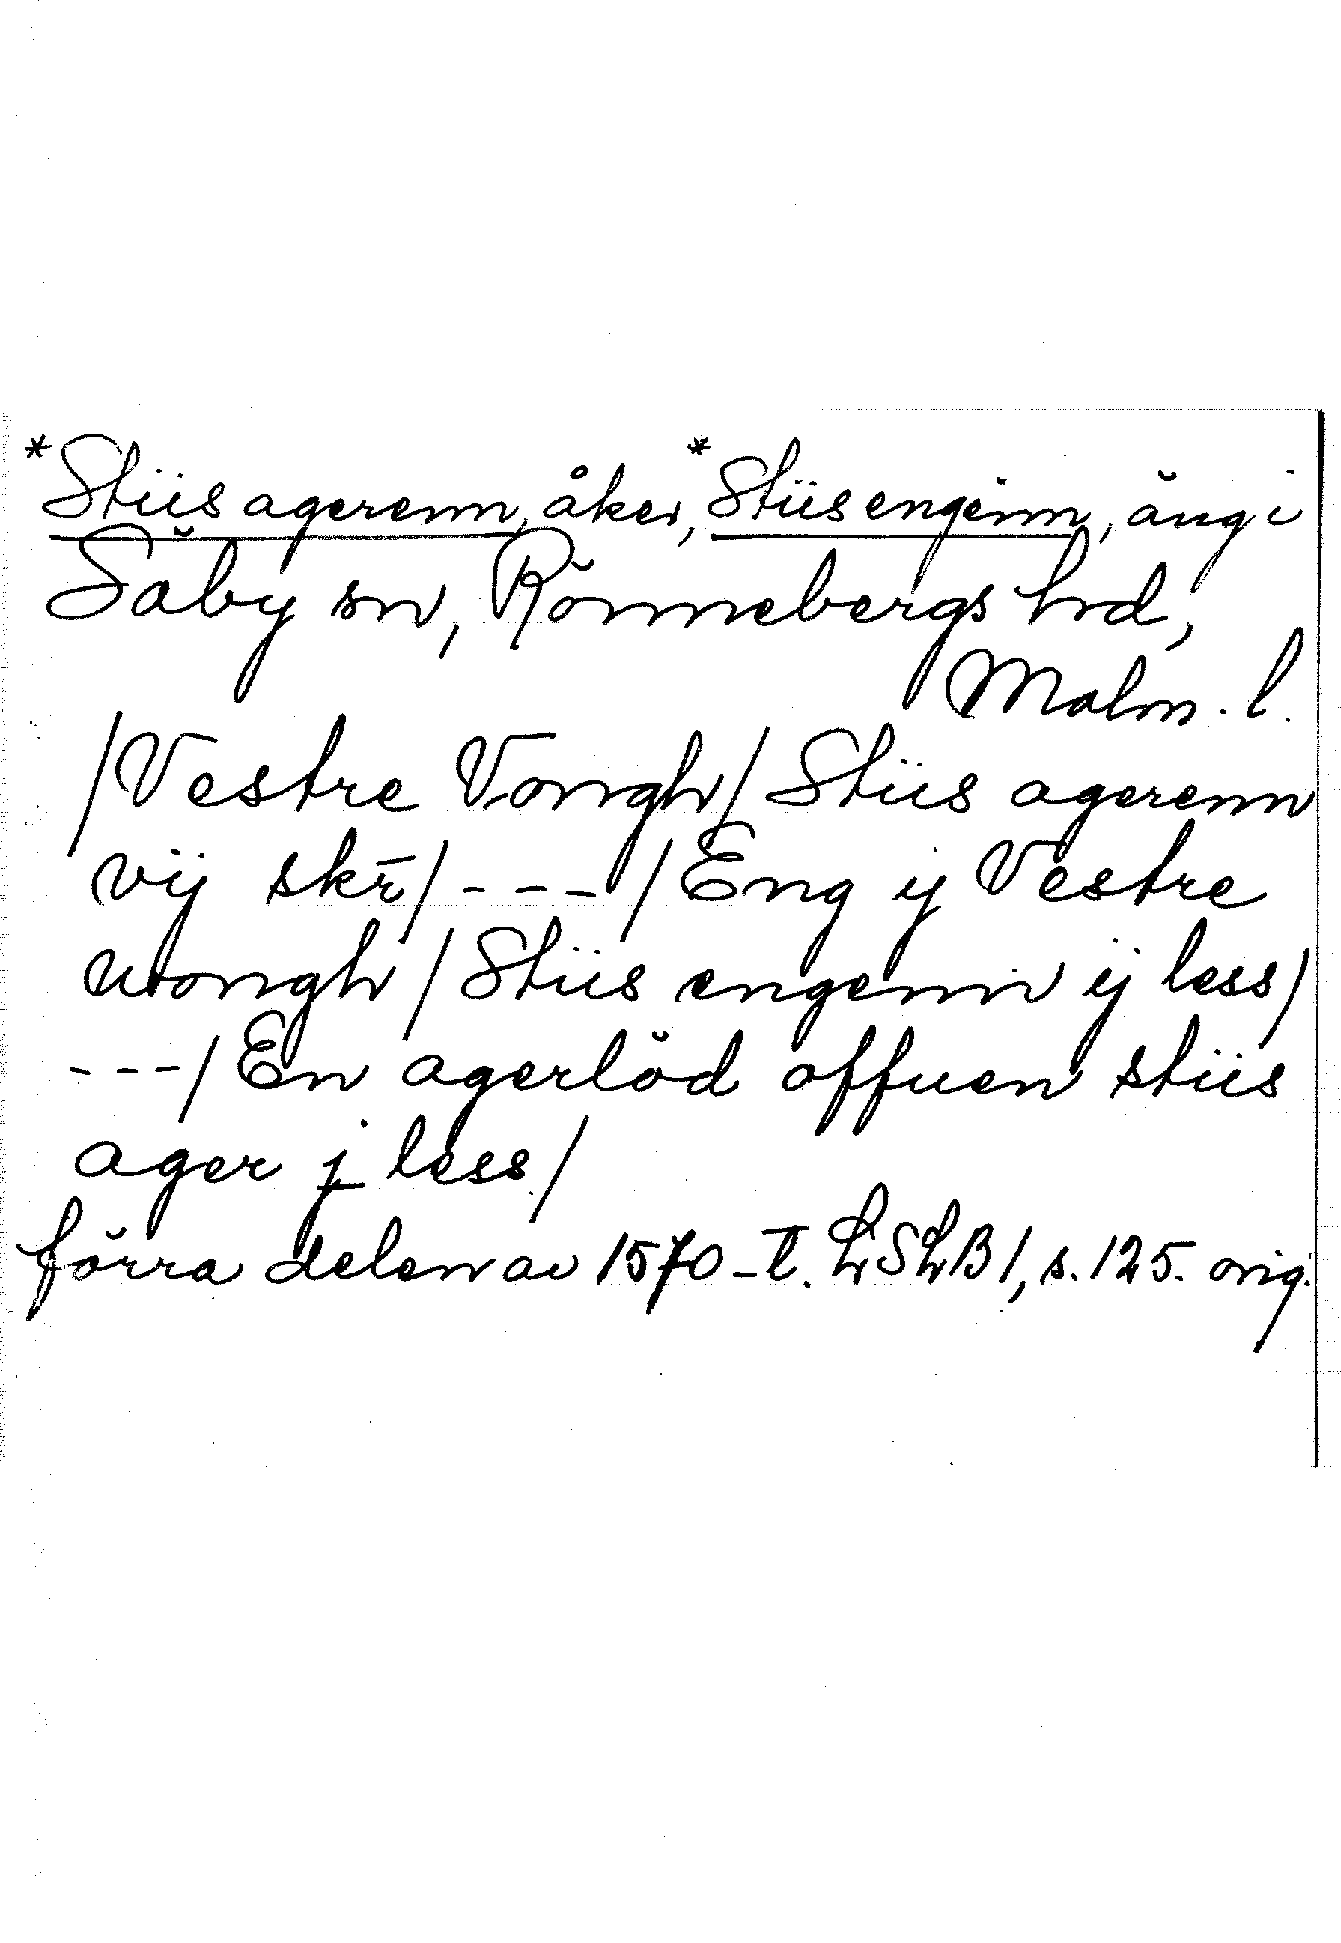 *Stiis agerenn, åker, *Stiis engenn, äng i
Säby sn, Rönnebergs hrd,
Malm. l.
/Vestre Vongh/ Stiis agerenn
vij skr̄/ - - - / Eng ij Vestre
wongh / Stiis engenn ij less/
- - - / En agerlöd offuen stiis
ager j less/
förra delen av 1570-t. LSLB 1, s. 125. orig.